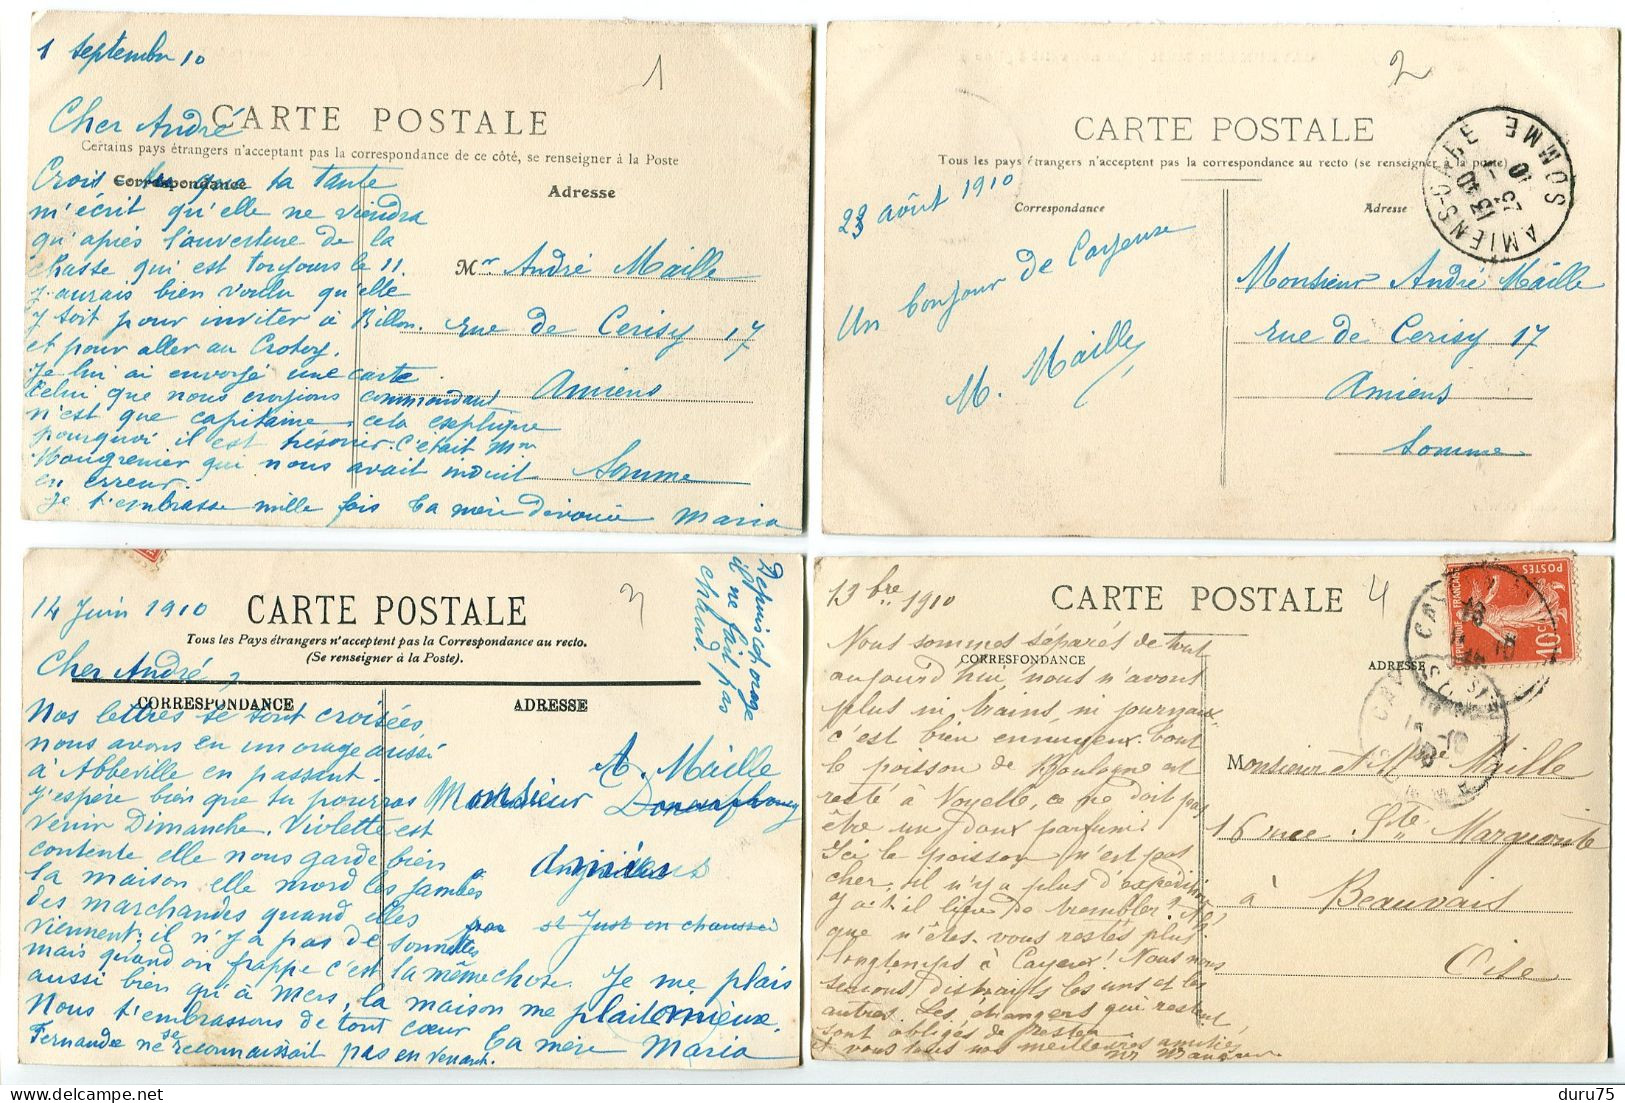 1 septembre 10
1
CARTE POSTALE
Cher André
Certains pays étrangers n'acceptant pas la correspondance de ce côté, se renseigner à la Poste
Crois que ta tante
Correspondance
Adresse
m'écrit qu'elle ne viendra
qu'après l'ouverture de la
chasse qui est toujours le 11.
Mr André Maille
j'aurais bien voulu qu'elle
y soit pour inviter à Billon.
rue de Cerisy 17
et pour aller au Crotoy.
Je lui ai envoyé une carte.
Amiens
celui que nous croyions commandant
n'est que capitaine, cela explique
pourquoi il est trésorier. C'était Mme
Mongrenier qui nous avait induit
Somme
en erreur.
Je t'embrasse mille fois ta mère dévouée Maria
2
CARTE POSTALE
Tous les pays étrangers n'acceptent pas la correspondance au recto (se renseigner à la poste)
AMIENS-GARE SOMME
13 40
23 10
23 août 1910
Correspondance
Adresse
Un bonjour de Cayeux
M. Maille
Monsieur André Maille
rue de Cerisy 17
Amiens
Somme
14 Juin 1910
CARTE POSTALE
3
Depuis cet orage
il ne fait pas
chaud.
Tous les Pays étrangers n'acceptent pas la Correspondance au recto.
(Se renseigner à la Poste).
Cher André,
CORRESPONDANCE
ADRESSE
Nos lettres se sont croisées
nous avons eu un orage aussi
à Abbeville en passant.
J'espère bien que tu pourras
venir Dimanche. Violette est
contente elle nous garde bien
la maison elle mord les jambes
des marchandes quand elles
viennent. il n'y a pas de sonnettes
mais quand on frappe c'est la même chose. Je me plais
aussi bien qu'à Mers, la maison me plait mieux.
Nous t'embrassons de tout coeur Ta mère Maria
Fernande ne se reconnaissait pas en venant.
Monsieur A. Maille
Amiens
par St Just en chaussée
13 bre 1910
CARTE POSTALE
4
POSTES
RÉPUBLIQUE FRANÇAISE
10c
Nous sommes séparés de tout
CORRESPONDANCE
ADRESSE
aujourd'hui, nous n'avons
plus ni trains, ni journaux
c'est bien ennuyeux. tout
le poisson de Boulogne est
resté à Noyelle, ce ne doit pas
être un doux parfum!
Ici le poisson n'est pas
cher, il n'y a plus d'expédition
Y a-t-il lieu de trembler? Ah!
que n'êtes-vous restés plus
longtemps à Cayeux! Nous nous
serions distraits les uns et les
autres. Les étrangers qui restent
sont obligés de rester
à vous tous nos meilleures amitiés
Monsieur et Mme Maille
16 rue Ste Marguerite
à Beauvais
Oise
delcampe.net
duru75